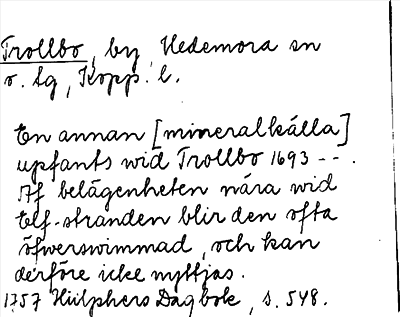 Trollbo, by, Hedemora sn
o. lg, Kopp. l.
En annan [mineralkälla]
upfants wid Trollbo 1693 -- .
Af belägenheten nära wid
Elf-stranden blir den ofta
öfwerswimmad, och kan
derföre icke nyttjas.
1757 Hülphers Dagbok, s. 548.